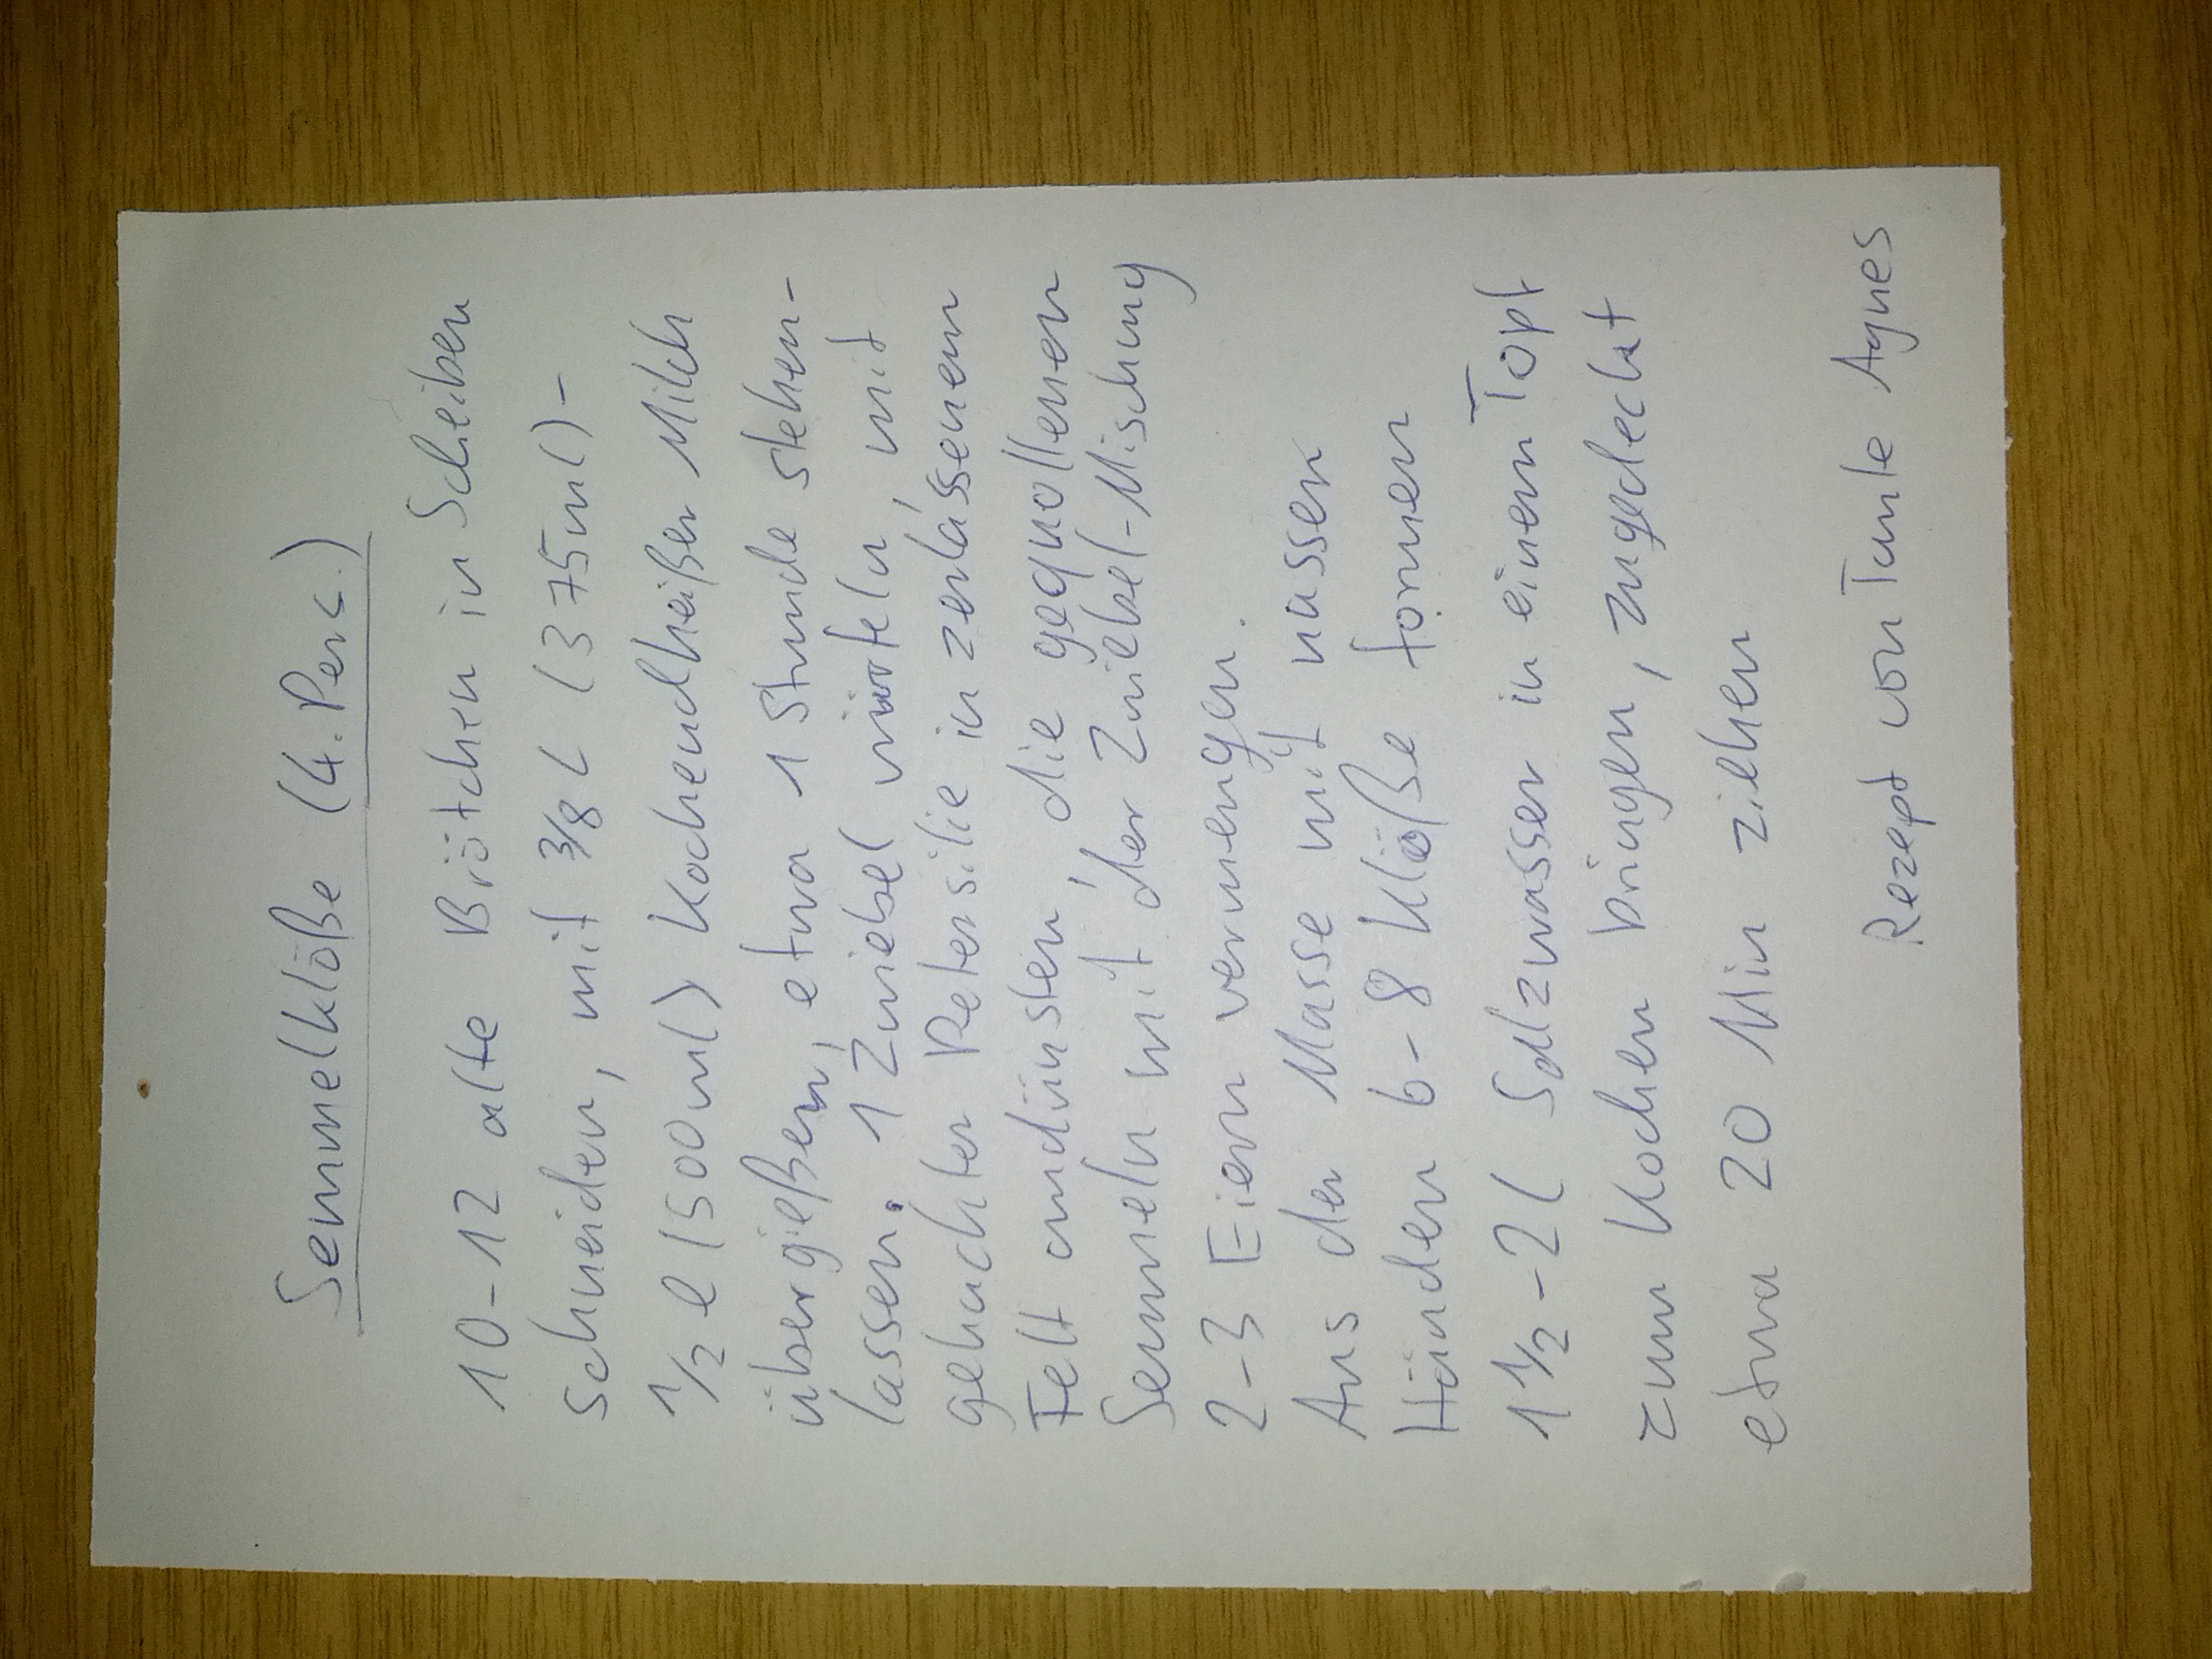 Semmelklöße (4. Pers.)
10-12 alte Brötchen in Scheiben
schneiden, mit 3/8 L (375ml) -
1/2 l (500ml) kochendheißer Milch
übergießen, etwa 1 Stunde stehen-
lassen. 1 Zwiebel würfeln, mit
gehackter Petersilie in zerlassenem
Fett andünsten, die gequollenen
Semmeln mit der Zwiebel-Mischung
2-3 Eiern vermengen.
Aus der Masse mit nassen
Händen 6-8 Klöße formen
1 1/2 - 2 l Salzwasser in einem Topf
zum Kochen bringen, zugedeckt
etwa 20 Min ziehen
Rezept von Tante Agnes